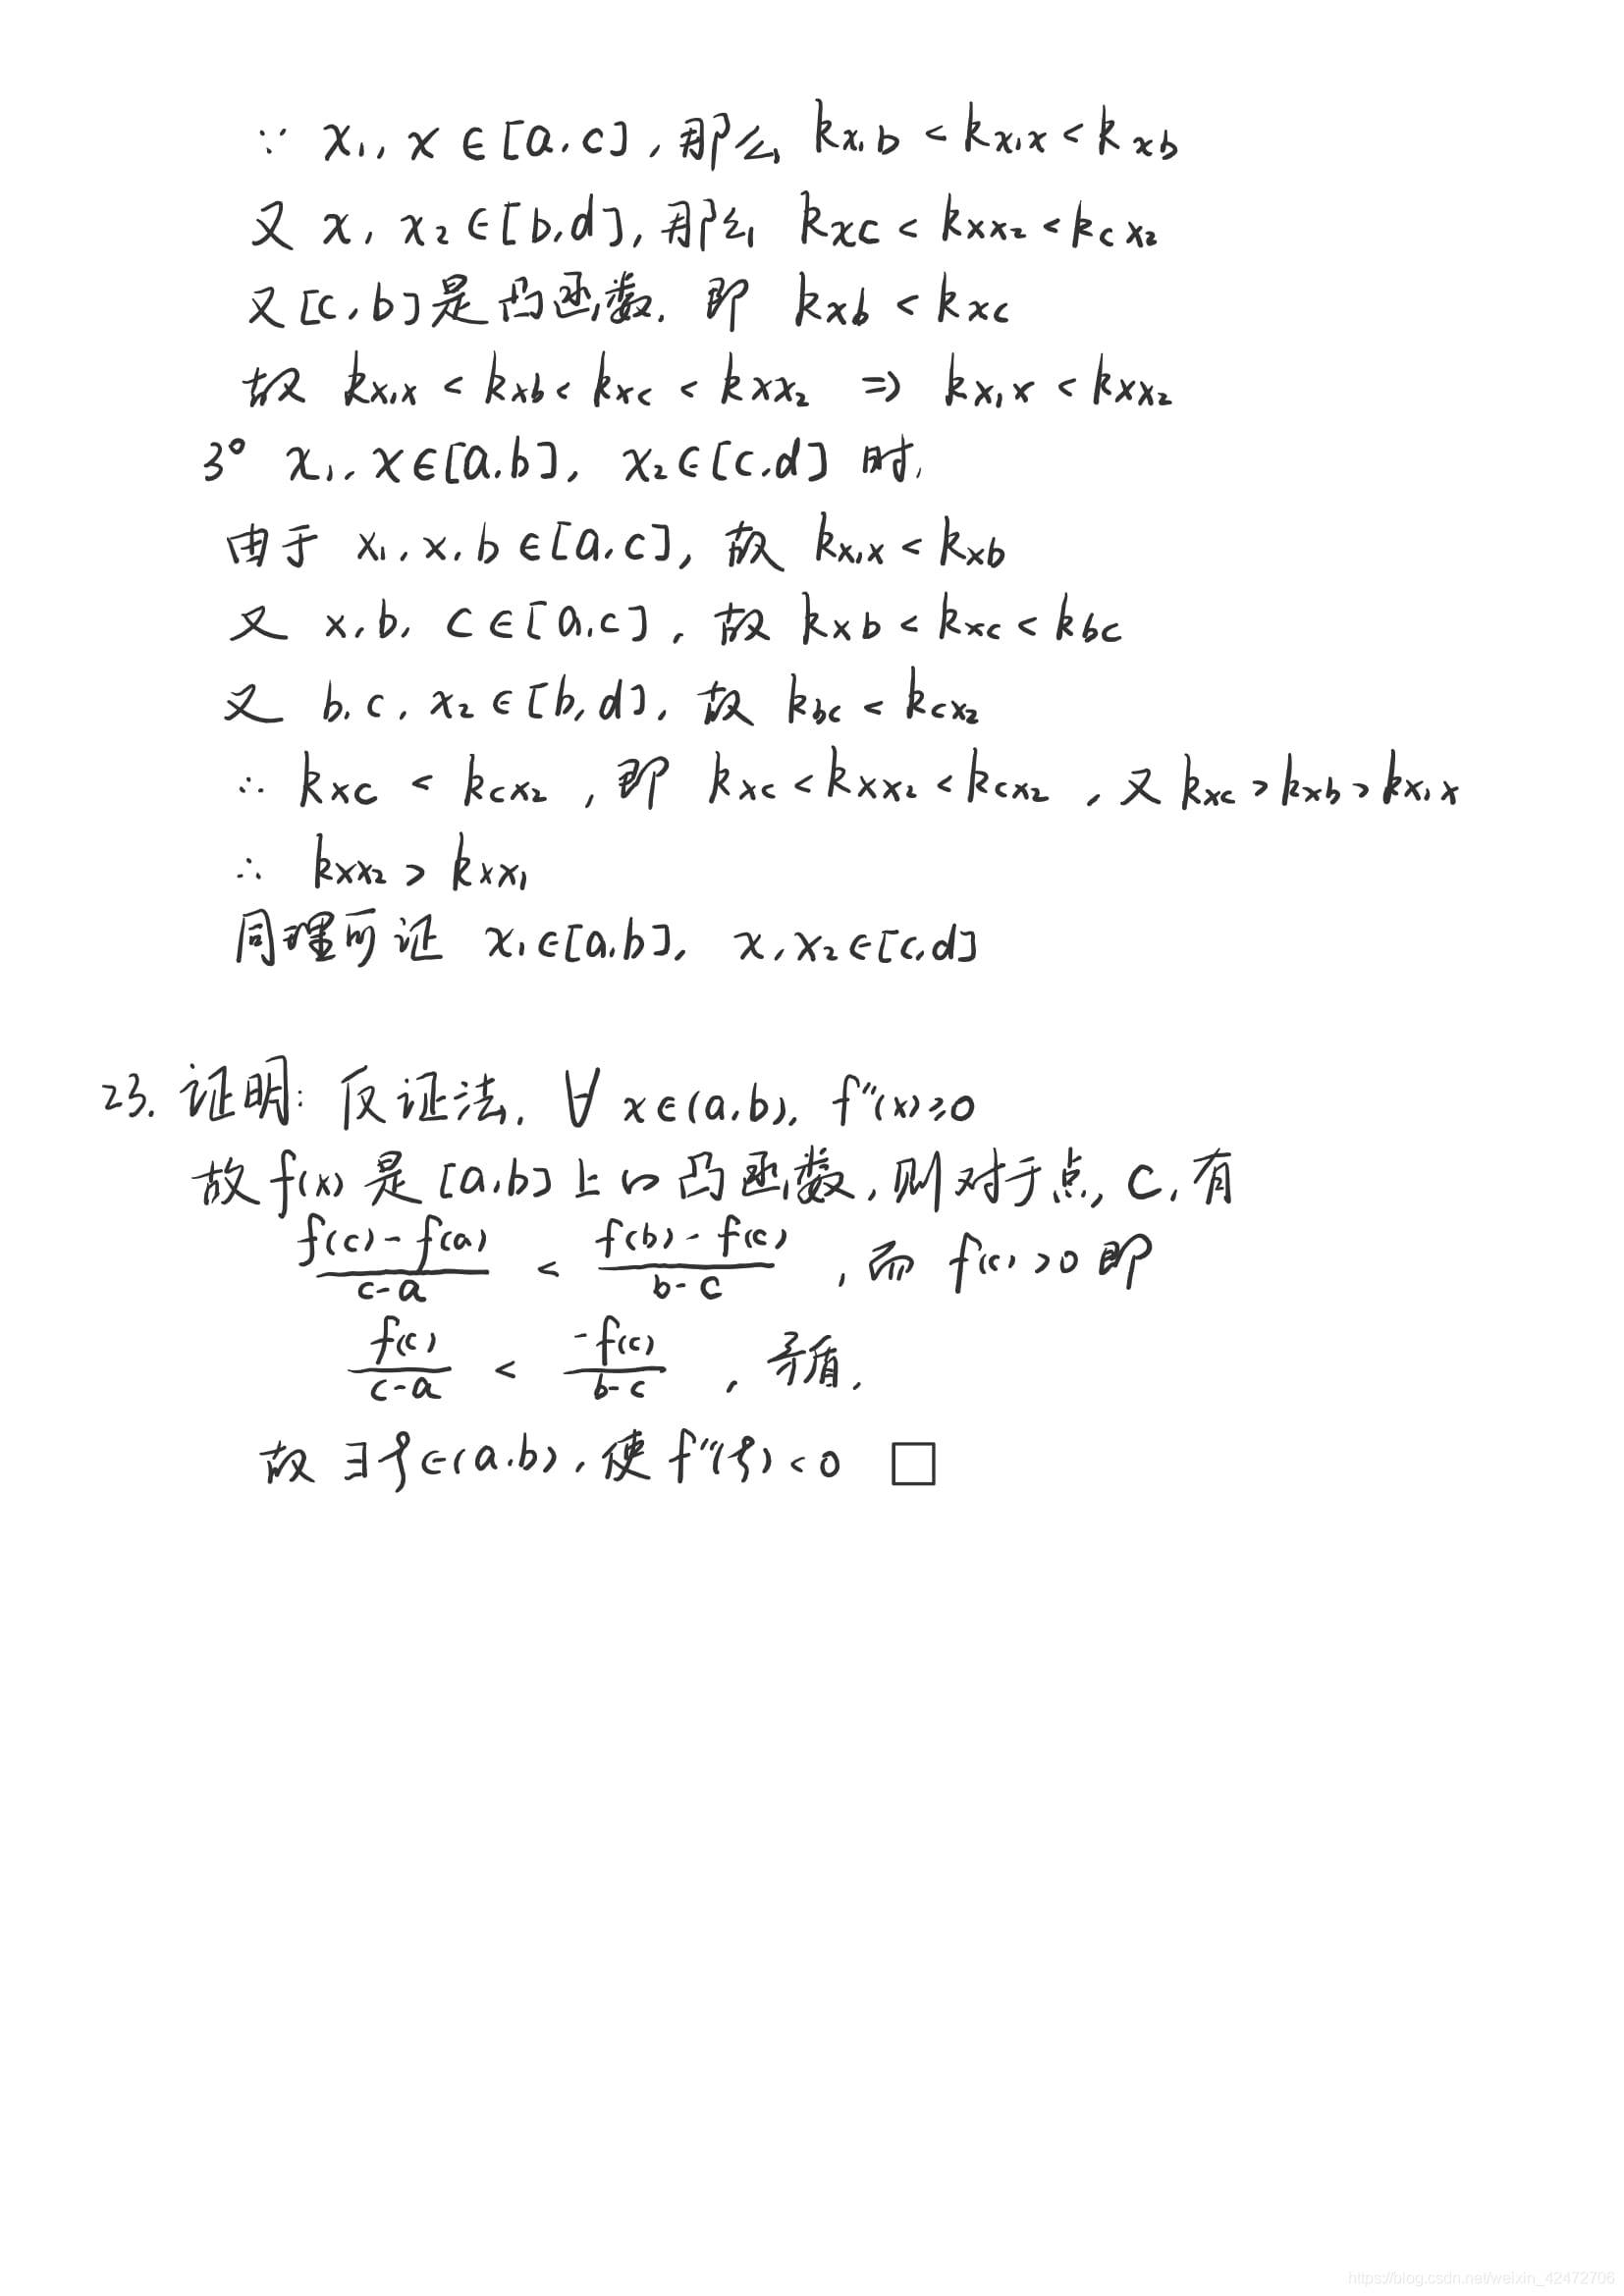 ∵ x₁, x ∈ [a, c], 那么 k_{x₁b} < k_{x₁x} < k_{xb}
又 x, x₂ ∈ [b, d], 那么 k_{xc} < k_{xx₂} < k_{cx₂}
又 [c, b] 是凸函数. 即 k_{xb} < k_{xc}
故 k_{x₁x} < k_{xb} < k_{xc} < k_{xx₂} ⇒ k_{x₁x} < k_{xx₂}
3° x₁, x ∈ [a, b], x₂ ∈ [c, d] 时,
由于 x₁, x, b ∈ [a, c], 故 k_{x₁x} < k_{xb}
又 x, b, c ∈ [a, c], 故 k_{xb} < k_{xc} < k_{bc}
又 b, c, x₂ ∈ [b, d], 故 k_{bc} < k_{cx₂}
∴ k_{xc} < k_{cx₂}, 即 k_{xc} < k_{xx₂} < k_{cx₂}, 又 k_{xc} > k_{xb} > k_{x₁x}
∴ k_{xx₂} > k_{xx₁}
同理可证 x₁ ∈ [a, b], x, x₂ ∈ [c, d]
23. 证明: 反证法. ∀ x ∈ (a, b). f''(x) ≥ 0
故 f(x) 是 [a, b] 上的凸函数, 则对于点 c, 有
(f(c) - f(a))/(c - a) < (f(b) - f(c))/(b - c), 而 f(c) > 0 即
f(c)/(c - a) < -f(c)/(b - c), 矛盾.
故 ∃ ξ ∈ (a, b), 使 f''(ξ) < 0 □
https://blog.csdn.net/weixin_42472706